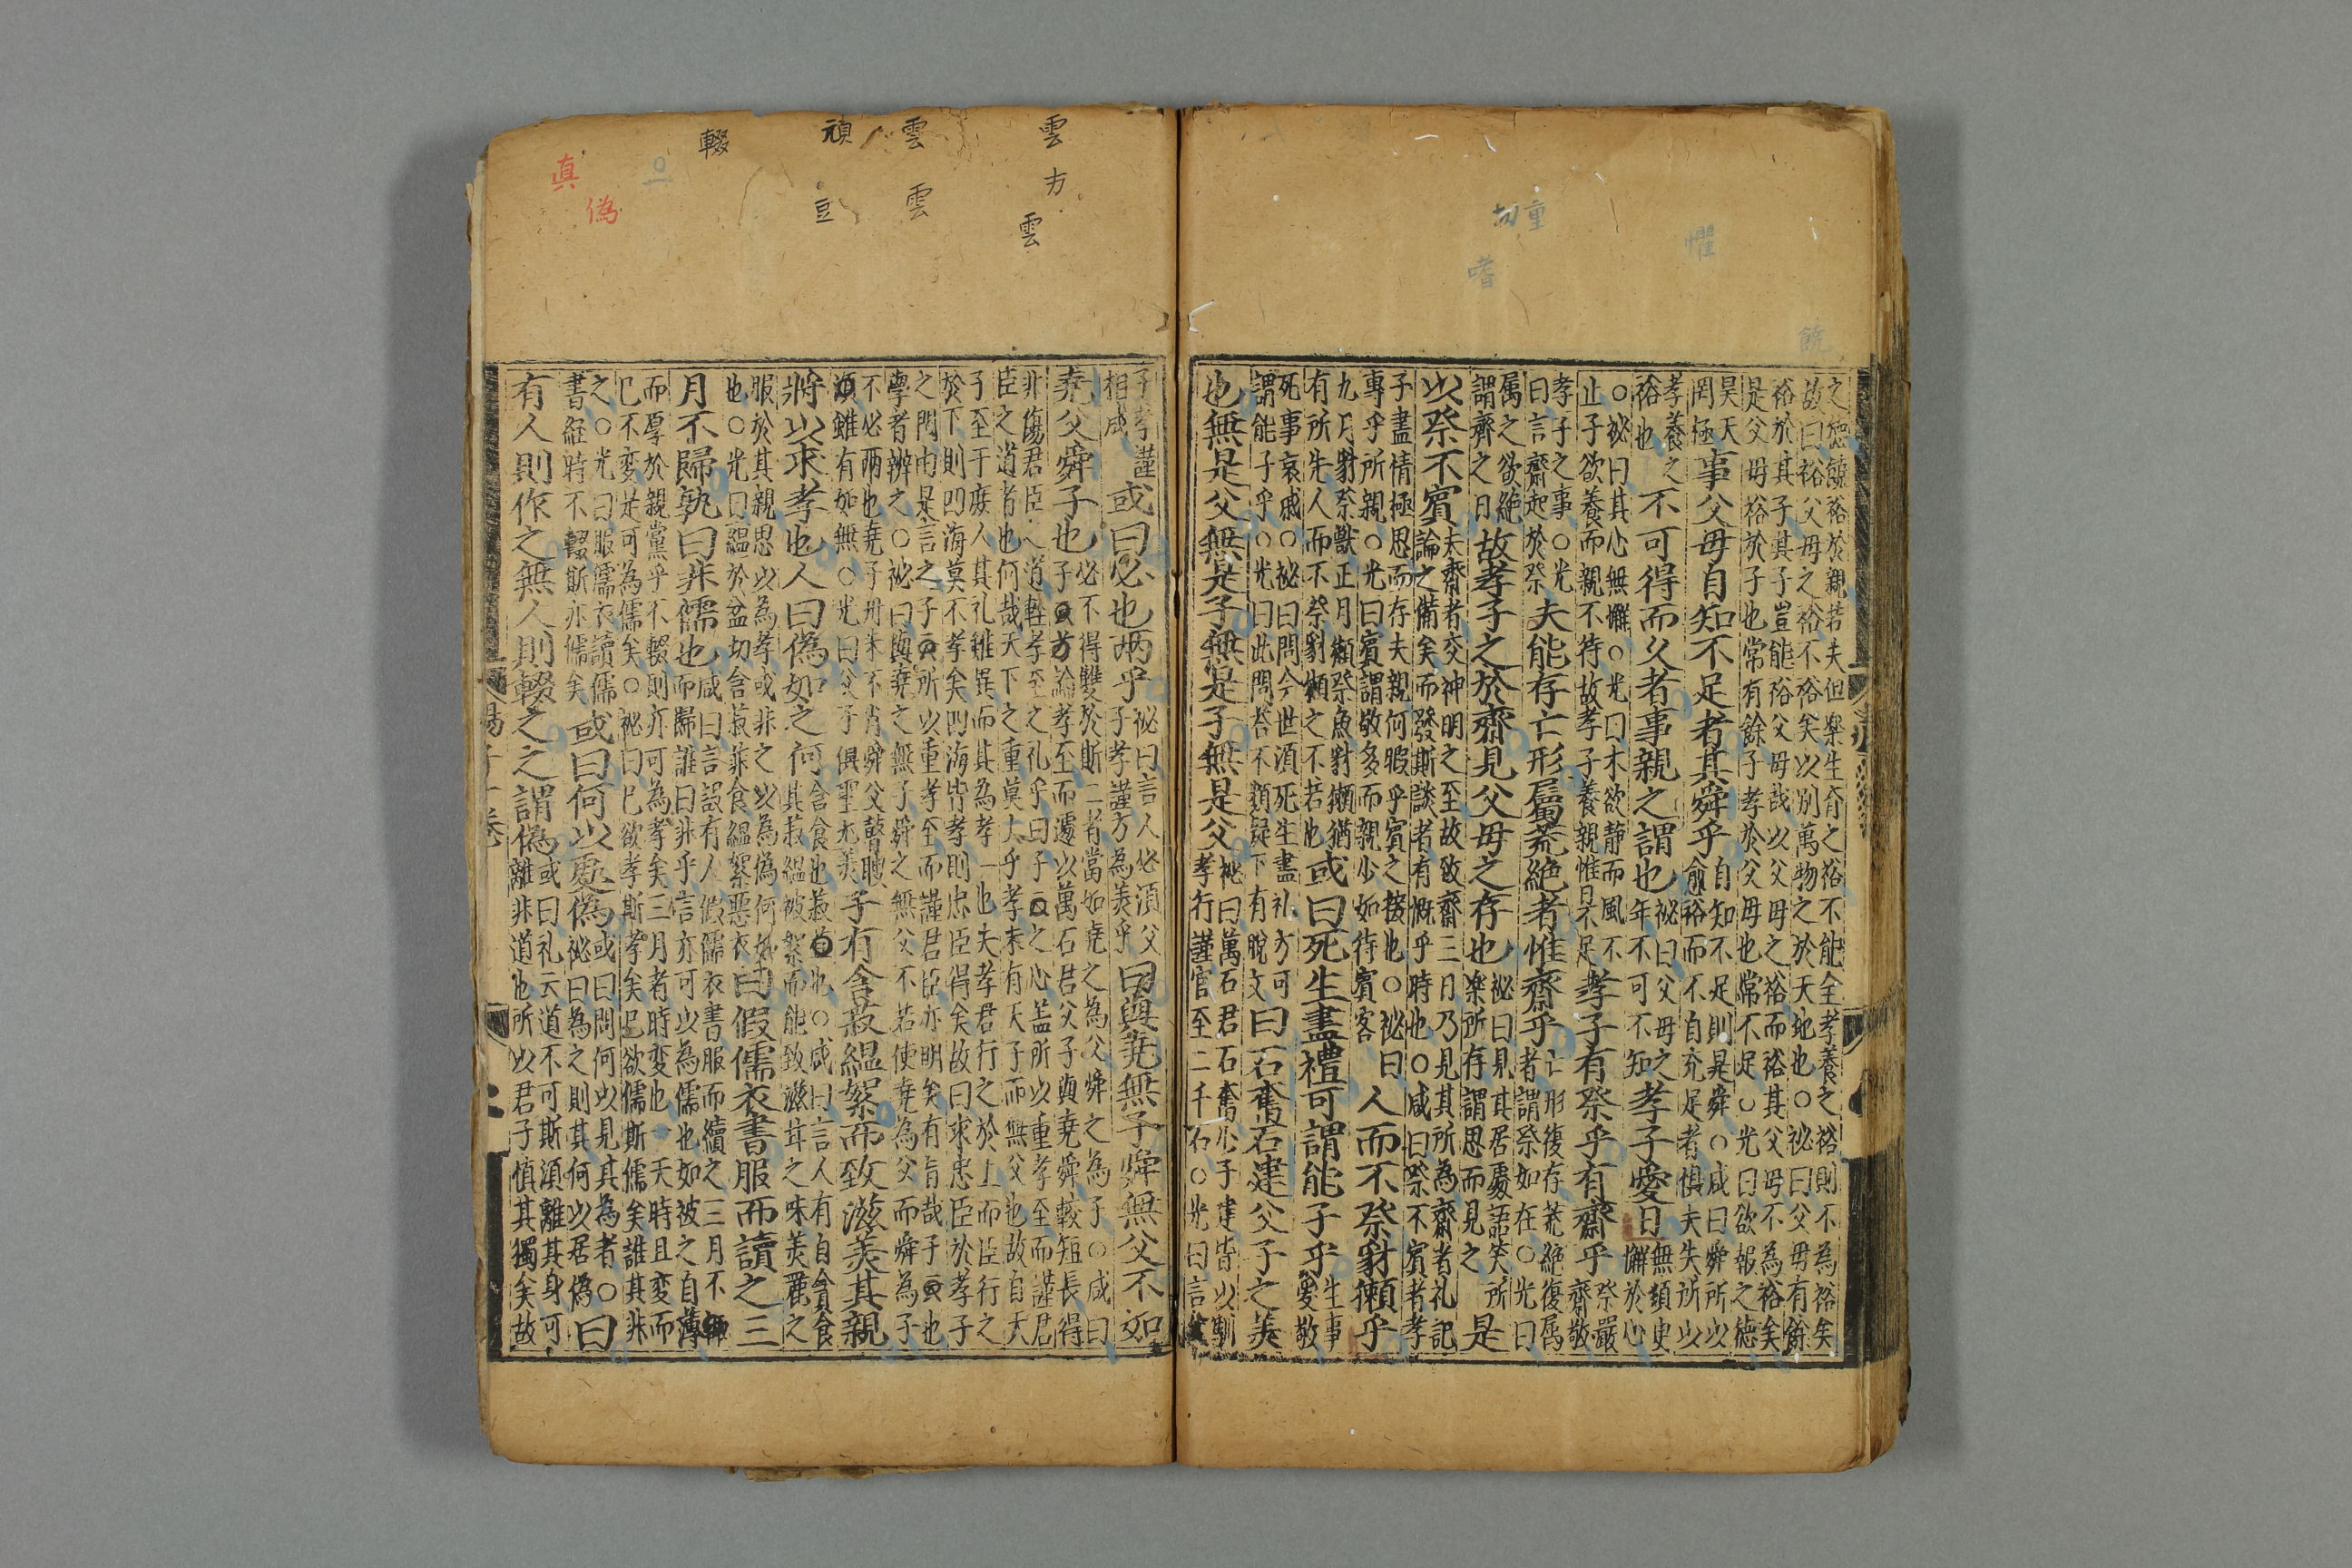 饒
懼
重
勿
嗜
之德饒裕於親若夫但樂生育之裕不能全孝養之裕則不為裕矣
故曰裕父母之裕不裕矣以別萬物之於天地也○祕曰父母有餘
裕於其子其子豈能裕父母哉以父母之裕而裕其父母不為裕矣
是父母裕於子也常有餘子孝於父母也常不足○光曰欲報之德
昊天
罔極
事父母自知不足者其舜乎
自知不足則是舜○咸曰舜所以
俞裕而不自充足者懼夫失所以
孝養之
裕也
不可得而久者事親之謂也
祕曰父母之
年不可不知
孝子愛日
無須史
懈於心
○祕曰其心無懈○光曰木欲静而風不
止子欲養而親不待故孝子養親惟日不足
孝子有祭乎有齋乎
祭嚴
齋敬
孝子之事○光
曰言齋起於祭
夫能存亡形屬荒絶者惟齋乎
亡形復存荒絶復属
者謂祭如在○光曰
属之欲絶
謂齊之日
故孝子之於齋見父母之存也
祕曰見其居處語笑所
樂所存謂思而見之
是
以祭不賓
夫齋者交神明之至故致齋三日乃見其所為齋者礼記
論之備矣而發斯談者有慨乎時也○咸曰祭不賓者孝
子盡情極思而存夫親何暇乎賓之接也○祕曰
專乎所親○光曰賓謂敬多而親少如待賓客
人而不祭豺獺乎
九月豺祭獸正月獺祭魚豺獺猶
有所先人而不祭豺獺之不若也
或曰死生盡禮可謂能子乎
生事
愛敬
死事哀慼○祕曰問今世須死生盡礼方可
謂能子乎○光曰此問荅不類疑下有脫文
曰石奮石建父子之美
也無是父無是子無是子無是父
祕曰萬石君石奮少子建皆以馴
孝行謹官至二千石○光曰言
雲
方
雲
雲
雲
頑
豆
輟
偽
真
子孝謹
相成
或曰必也兩乎
祕曰言人必須父
子孝謹方為美乎
曰與堯無子舜無父不如
堯父舜子也
必不得雙於斯二者當如堯之為父舜之為子○咸曰
論孝至而遽以萬石君父子與堯舜較短長得
非傷君臣
孝至之礼乎曰子
之心盖所以重孝至而謹君
臣之道者也何哉天下之重莫大乎孝未有天子而無父也故自天
子至于庶人其礼雖異而其為孝一也夫孝君行之於上而臣行之
於下則四海莫不孝矣四海皆孝則忠臣得矣故曰求忠臣於孝子
之門由是言之子
所以重孝至而謹君臣亦明矣有旨哉子
也
學者辦之○祕曰與堯之無子舜之無父不若使堯為父而舜為子
不必兩也堯子丹朱不肖舜父瞽瞍
雖有如無○光曰父子俱聖尤美
子有含菽緼絮而致滋美其親
將以求孝也人曰偽如之何
含食也菽
也○咸曰言人有自含貪食
其菽緼被絮而能致滋茸之味美麗之
服於其親思以為孝或非之以為偽何如
也○光曰緼於盆切含菽菲食緼絮惡衣
曰假儒衣書服而讀之三
月不歸孰曰非儒也
咸曰言設有人假儒衣書服而續之三月不
而歸誰曰非乎言亦可以為儒也如被之自
而厚於親黨乎不輟則亦可為孝矣三月者時変也一天時且変而
已不変是可為儒矣○祕曰已欲孝斯孝矣已欲儒斯儒矣誰其非
之○光曰服儒衣讀儒
書經時不輟斯亦儒矣
或曰何以處偽
或曰問何以見其為者○
祕曰為之則其何以居偽
曰
有人則作之無人則輟之之謂偽
或曰礼云道不可斯須離其身可
離非道也所以君子慎其獨矣故